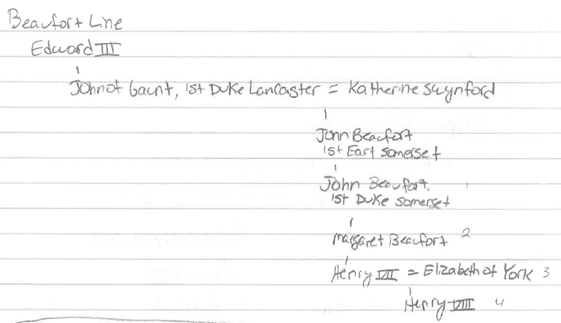 Beaufort Line
Edward III
John of Gaunt, 1st Duke Lancaster = Katherine Swynford
John Beaufort
1st Earl Somerset
John Beaufort,
1st Duke Somerset
Margaret Beaufort 2
Henry VII = Elizabeth of York 3
Henry VIII 4